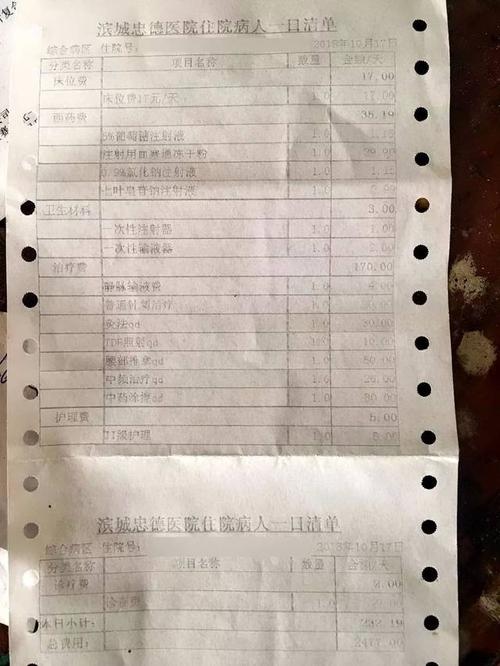 滨城忠德医院住院病人一日清单
综合病区 住院号: 2018年10月17日
分类名称 项目名称 数量 金额/天
床位费 17.00
床位费17元/天 1.0 17.00
西药费 35.19
5%葡萄糖注射液 1.0
注射用血塞通冻干粉 1.0
0.9%氯化钠注射液 1.0
七叶皂苷钠注射液 1.0
卫生材料 3.00
一次性注射器 1.0 1.00
一次性输液器 1.0 2.00
治疗费 170.00
静脉输液费 1.0 4.00
普通针刺治疗
灸法qd 1.0
TDP照射qd 1.0
腰部推拿qd 1.0 50.00
中频治疗qd 1.0
中药涂擦qd 1.0 30.00
护理费 5.00
II级护理 1.0 5.00
滨城忠德医院住院病人一日清单
综合病区 住院号: 2018年10月17日
分类名称 项目名称 数量 金额/天
诊疗费
诊查费 1.0
本日小计:
总费用: 2477.00